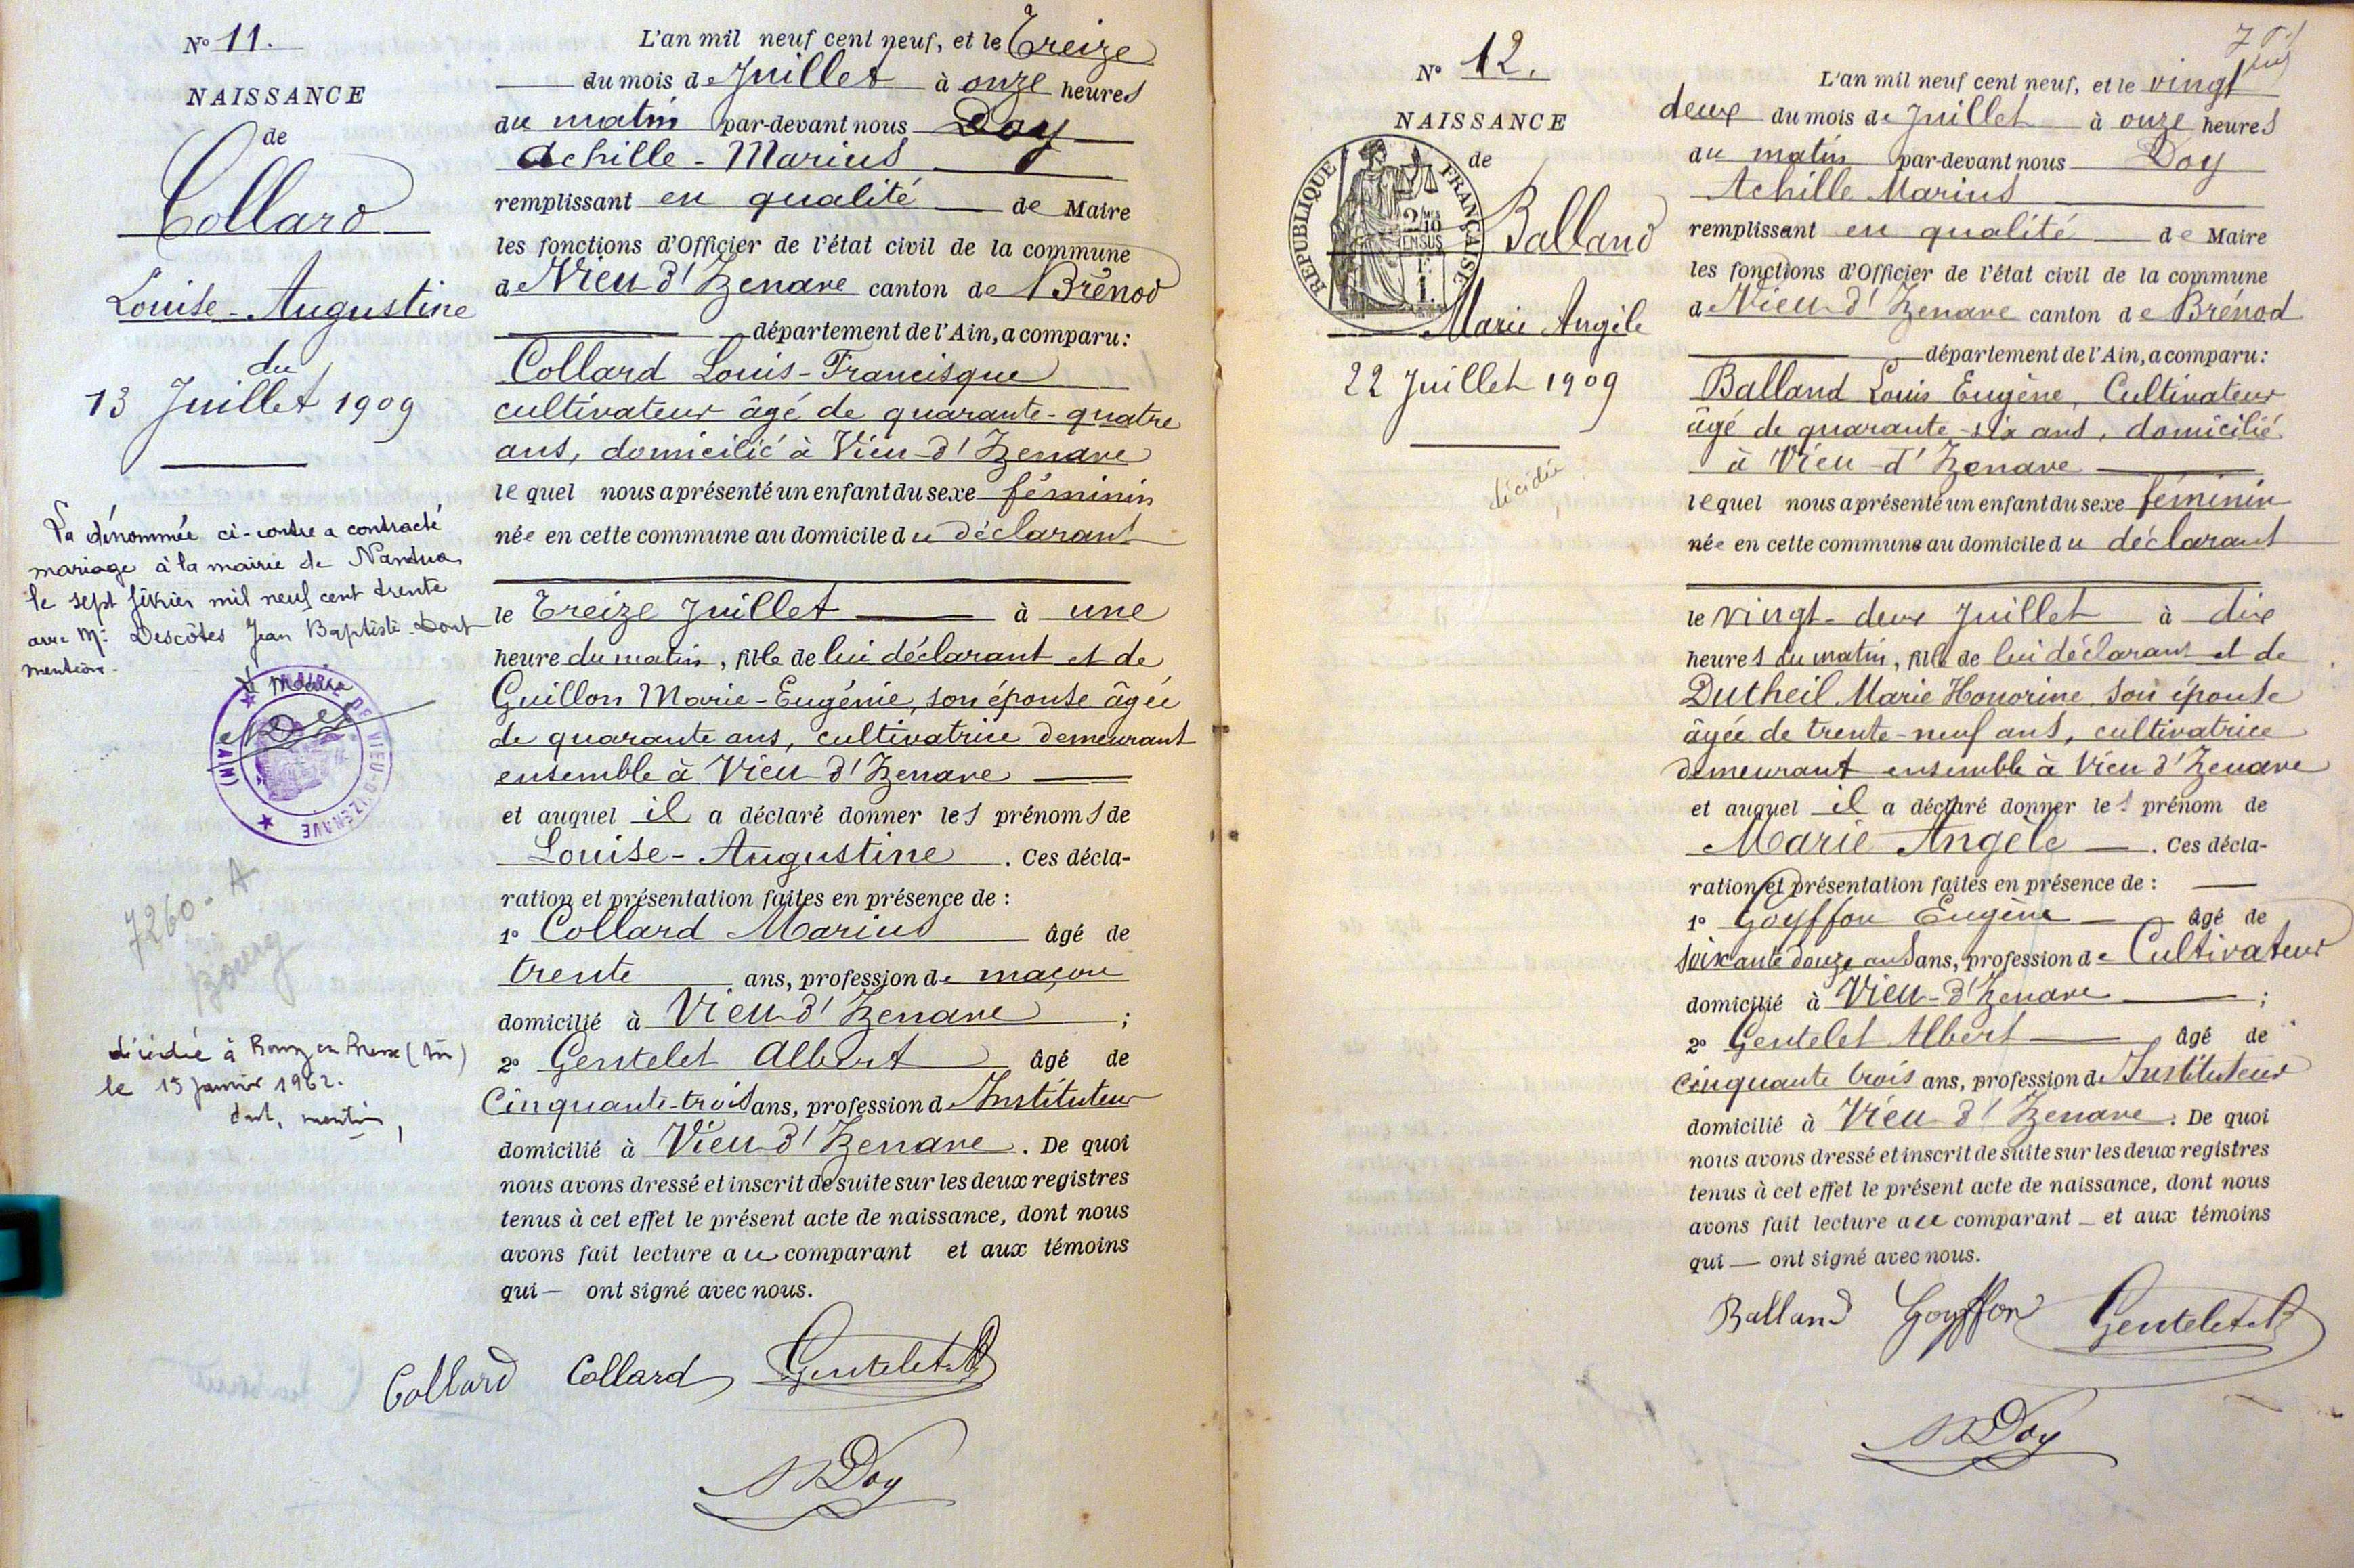 N° 11.
NAISSANCE
de
Collard
Louise-Augustine
du
13 Juillet 1909
La dénommée ci-contre a contracté
mariage à la mairie de Nantua
le sept février mil neuf cent trente
avec Mr Descôtes Jean Baptiste. Dont
mention.
MAIRIE DE VIEU-D'IZENAVE
(AIN)
7260-A
Bourg
décédée à Bourg en Bresse (Ain)
le 15 janvier 1962.
dont mention,
L'an mil neuf cent neuf, et le Treize
du mois de Juillet à onze heures
du matin par-devant nous Doy
Achille-Marius
remplissant en qualité de Maire
les fonctions d'Officier de l'état civil de la commune
de Vieu d'Izenave canton de Brénod
département de l'Ain, a comparu:
Collard Louis-Francisque
cultivateur âgé de quarante-quatre
ans, domicilié à Vieu-d'Izenave
lequel nous a présenté un enfant du sexe féminin
née en cette commune au domicile du déclarant
le Treize Juillet à une
heure du matin, fille de lui déclarant et de
Guillon Marie-Eugénie, son épouse âgée
de quarante ans, cultivatrice demeurant
ensemble à Vieu-d'Izenave
et auquel il a déclaré donner les prénoms de
Louise-Augustine. Ces décla-
ration et présentation faites en présence de :
1° Collard Marius âgé de
trente ans, profession de maçon
domicilié à Vieu d'Izenave ;
2° Gentelet Albert âgé de
Cinquante-trois ans, profession d'Instituteur
domicilié à Vieu d'Izenave. De quoi
nous avons dressé et inscrit de suite sur les deux registres
tenus à cet effet le présent acte de naissance, dont nous
avons fait lecture au comparant et aux témoins
qui — ont signé avec nous.
Collard Collard Gentelet A
Doy
N° 12.
NAISSANCE
de
REPUBLIQUE FRANÇAISE
2/10
EN SUS
Balland
Marie Angèle
22 Juillet 1909
décédée
L'an mil neuf cent neuf, et le vingt
deux du mois de Juillet à onze heures
du matin par-devant nous Doy
Achille Marius
remplissant en qualité de Maire
les fonctions d'Officier de l'état civil de la commune
de Vieu-d'Izenave canton de Brénod
département de l'Ain, a comparu:
Balland Louis Eugène, Cultivateur
âgé de quarante-six ans, domicilié
à Vieu-d'Izenave
lequel nous a présenté un enfant du sexe féminin
née en cette commune au domicile du déclarant
le vingt-deux Juillet à dix
heures du matin, fille de lui déclarant et de
Dutheil Marie Honorine son épouse
âgée de trente-neuf ans, cultivatrice
demeurant ensemble à Vieu d'Izenave
et auquel il a déclaré donner les prénom de
Marie Angèle. Ces décla-
ration et présentation faites en présence de :
1° Goyffon Eugène âgé de
soixante douze ans ans, profession de Cultivateur
domicilié à Vieu-d'Izenave ;
2° Gentelet Albert âgé de
Cinquante trois ans, profession d'Instituteur
domicilié à Vieu d'Izenave. De quoi
nous avons dressé et inscrit de suite sur les deux registres
tenus à cet effet le présent acte de naissance, dont nous
avons fait lecture au comparant et aux témoins
qui — ont signé avec nous.
Balland Goyffon Gentelet A
Doy